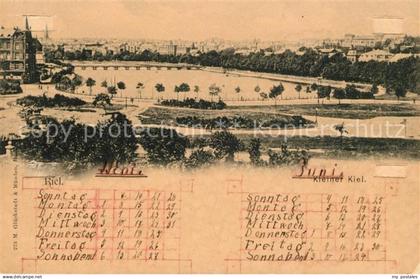 Kiel.
Mai.
Juni.
Kleiner Kiel.
Sonntag 7 14 21 28
Montag 1 8 15 22 29
Dienstag 2 9 16 23 30
Mittwoch 3 10 17 24 31
Donnerstag 4 11 18 25
Freitag 5 12 19 26
Sonnabend 6 13 20 27
Sonntag 4 11 18 25
Montag 5 12 19 26
Dienstag 6 13 20 27
Mittwoch 7 14 21 28
Donnerstag 1 8 15 22 29
Freitag 2 9 16 23 30
Sonnabend 3 10 17 24